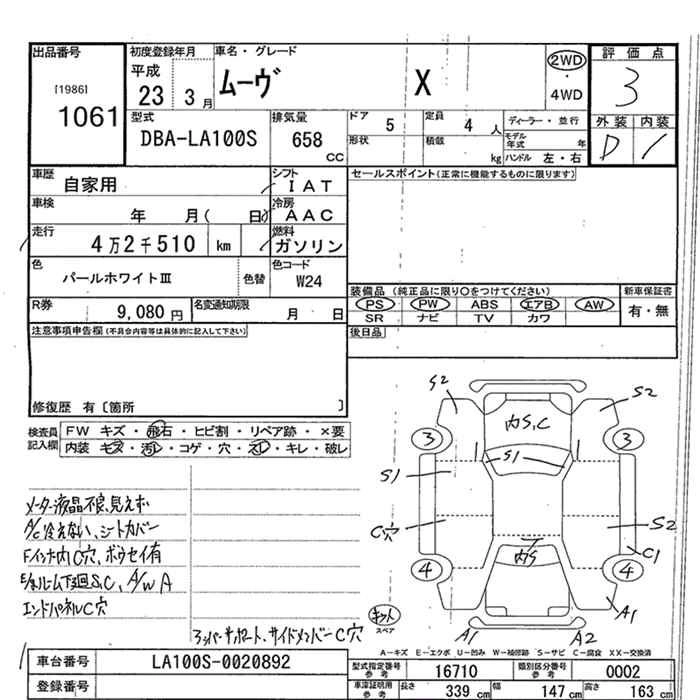 出品番号
[1986]
1061
初度登録年月
平成
23 3月
車名・グレード
ムーヴ X
2WD
・
4WD
評価点
3
外装 内装
D 1
型式
DBA-LA100S
排気量
658
CC
ドア 5
定員 4 人
形状
積載 kg
ディーラー・並行
モデル年式 年
ハンドル 左・右
車歴 自家用
シフト IAT
車検 年 月( 日)
冷房 AAC
走行 4万2千510 km
燃料 ガソリン
色 パールホワイトⅢ 色替
色コード W24
R券 9,080円
名変通知期限 月 日
セールスポイント(正常に機能するものに限ります)
装備品 (純正品に限り○をつけてください)
PS PW ABS エアB AW
SR ナビ TV カワ
新車保証書
有・無
後日品
注意事項申告欄(不具合内容等は具体的に記入して下さい)
修復歴 有〔箇所 〕
検査員記入欄
FW キズ・飛石・ヒビ割・リペア跡・×要
内装 キズ・汚レ・コゲ・穴・スレ・キレ・破レ
メーター液晶不良、見えず
A/C冷えない、シートカバー
Fインナー内C穴、ボウセイ有
E/ルーム下廻S,C、A/W A
エンドパネルC穴
アッパーサポート、サイドメンバーC穴
S2
S2
内S,C
3
3
S1
S1
C穴
S2
C1
内S
4
4
キット
スペア
A1
A2
A1
A-キズ E-エクボ U-凹み W-補修跡 S-サビ C-腐食 XX-交換済
車台番号 LA100S-0020892
登録番号
型式指定番号 参考 16710
類別区分番号 参考 0002
車庫証明用 参考
長さ 339 cm
幅 147 cm
高さ 163 cm